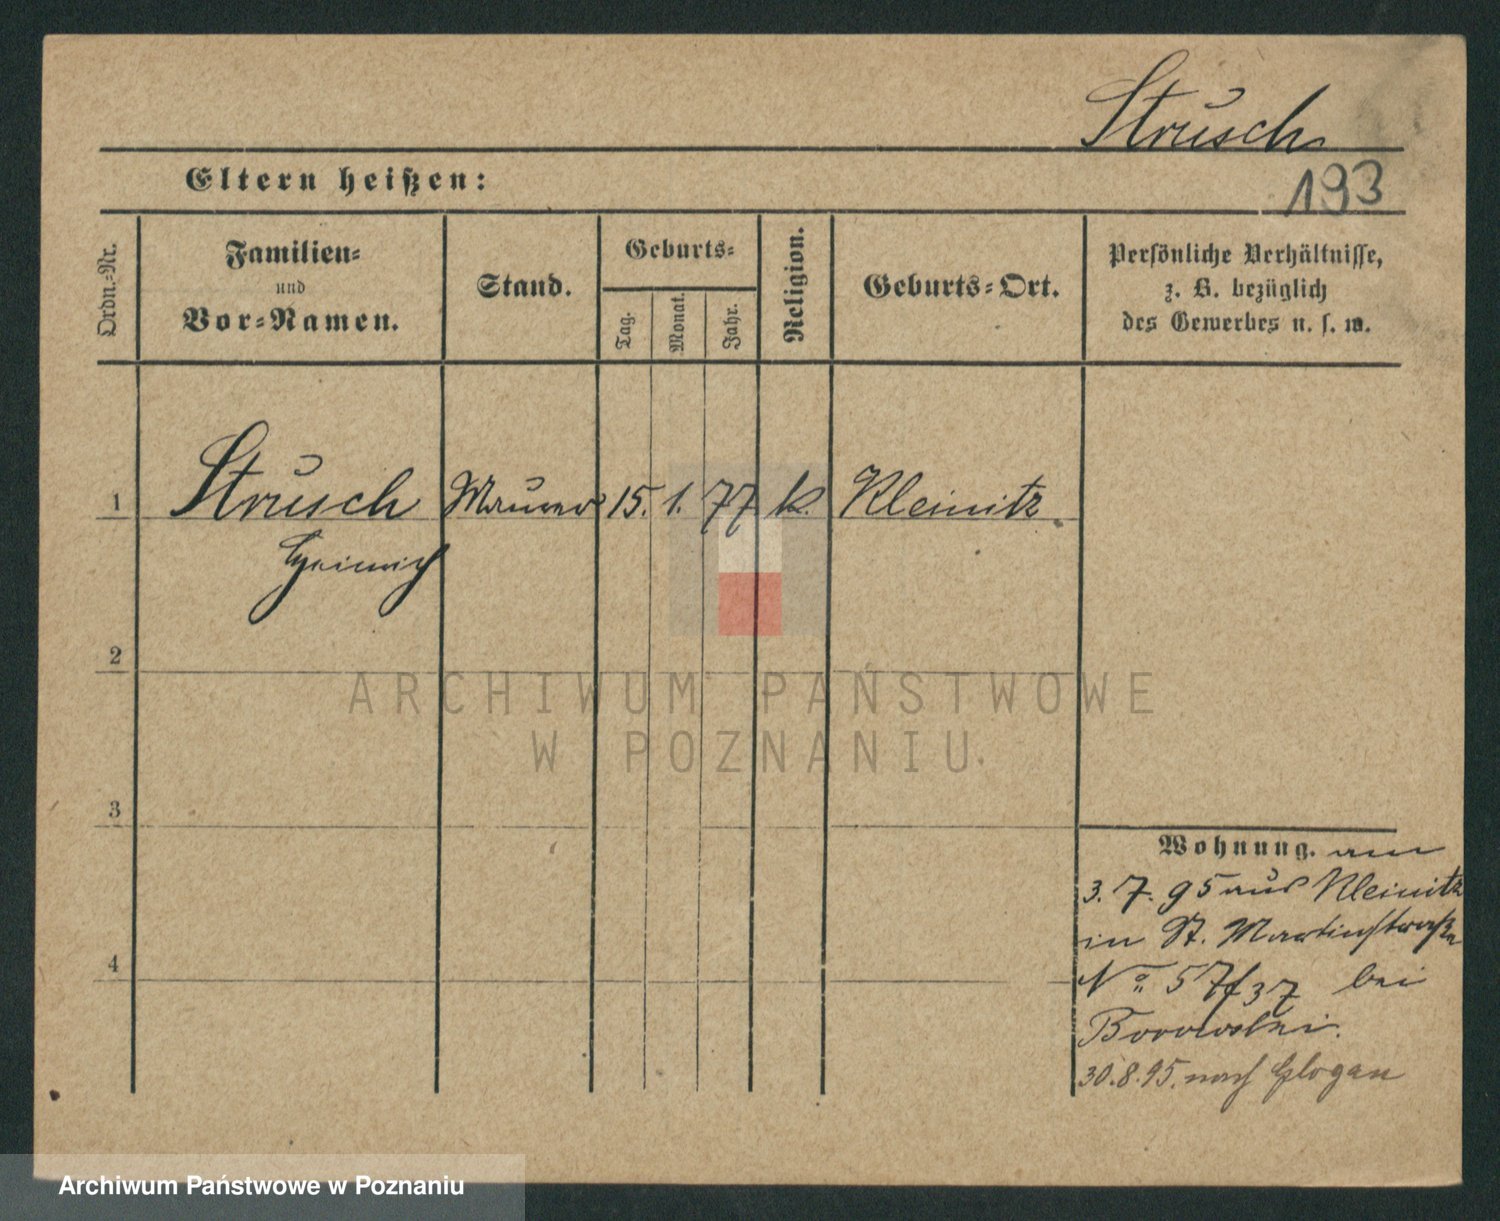 Strusch
193
Eltern heißen:
Ordn.-Nr.
Familien-
und
Vor-Namen.
Stand.
Geburts-
Tag.
Monat.
Jahr.
Religion.
Geburts-Ort.
Persönliche Verhältnisse,
z. B. bezüglich
des Gewerbes u. s. w.
1 Strusch Maurer 15. 1. 77 k. Kleinitz
Heinrich
2
3
4
Wohnung. am
3. 7. 95 aus Kleinitz
in St. Martinstraße
No 57/37 bei
Borowski.
30.8.95. nach Glogau
ARCHIWUM PAŃSTWOWE
W POZNANIU
Archiwum Państwowe w Poznaniu